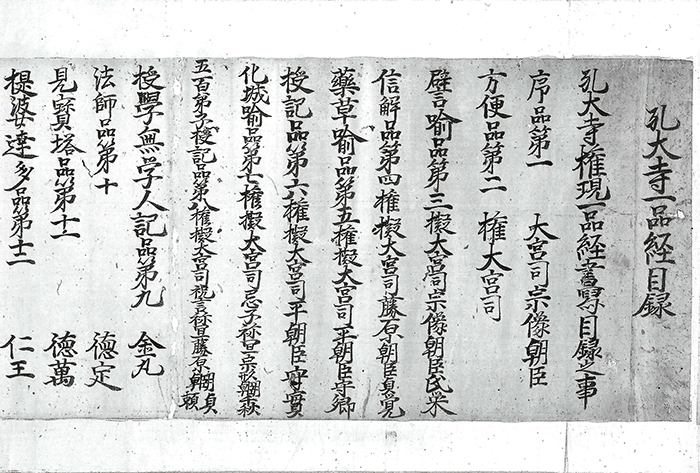 孔大寺一品経目録
孔大寺権現一品経書寫目録之事
序品第一 大宮司宗像朝臣
方便品第二 権大宮司
譬喻品第三擬大宮司宗像朝臣氏栄
信解品第四権擬大宮司藤原朝臣
藥草喻品第五権擬大宮司平朝臣守卿
授記品第六権擬大宮司平朝臣守實
化城喻品第七権擬大宮司
五百弟子授記品第八権擬大宮司
授學無学人記品第九 金丸
法師品第十 徳定
見寳塔品第十一 徳萬
提婆達多品第十二 仁王